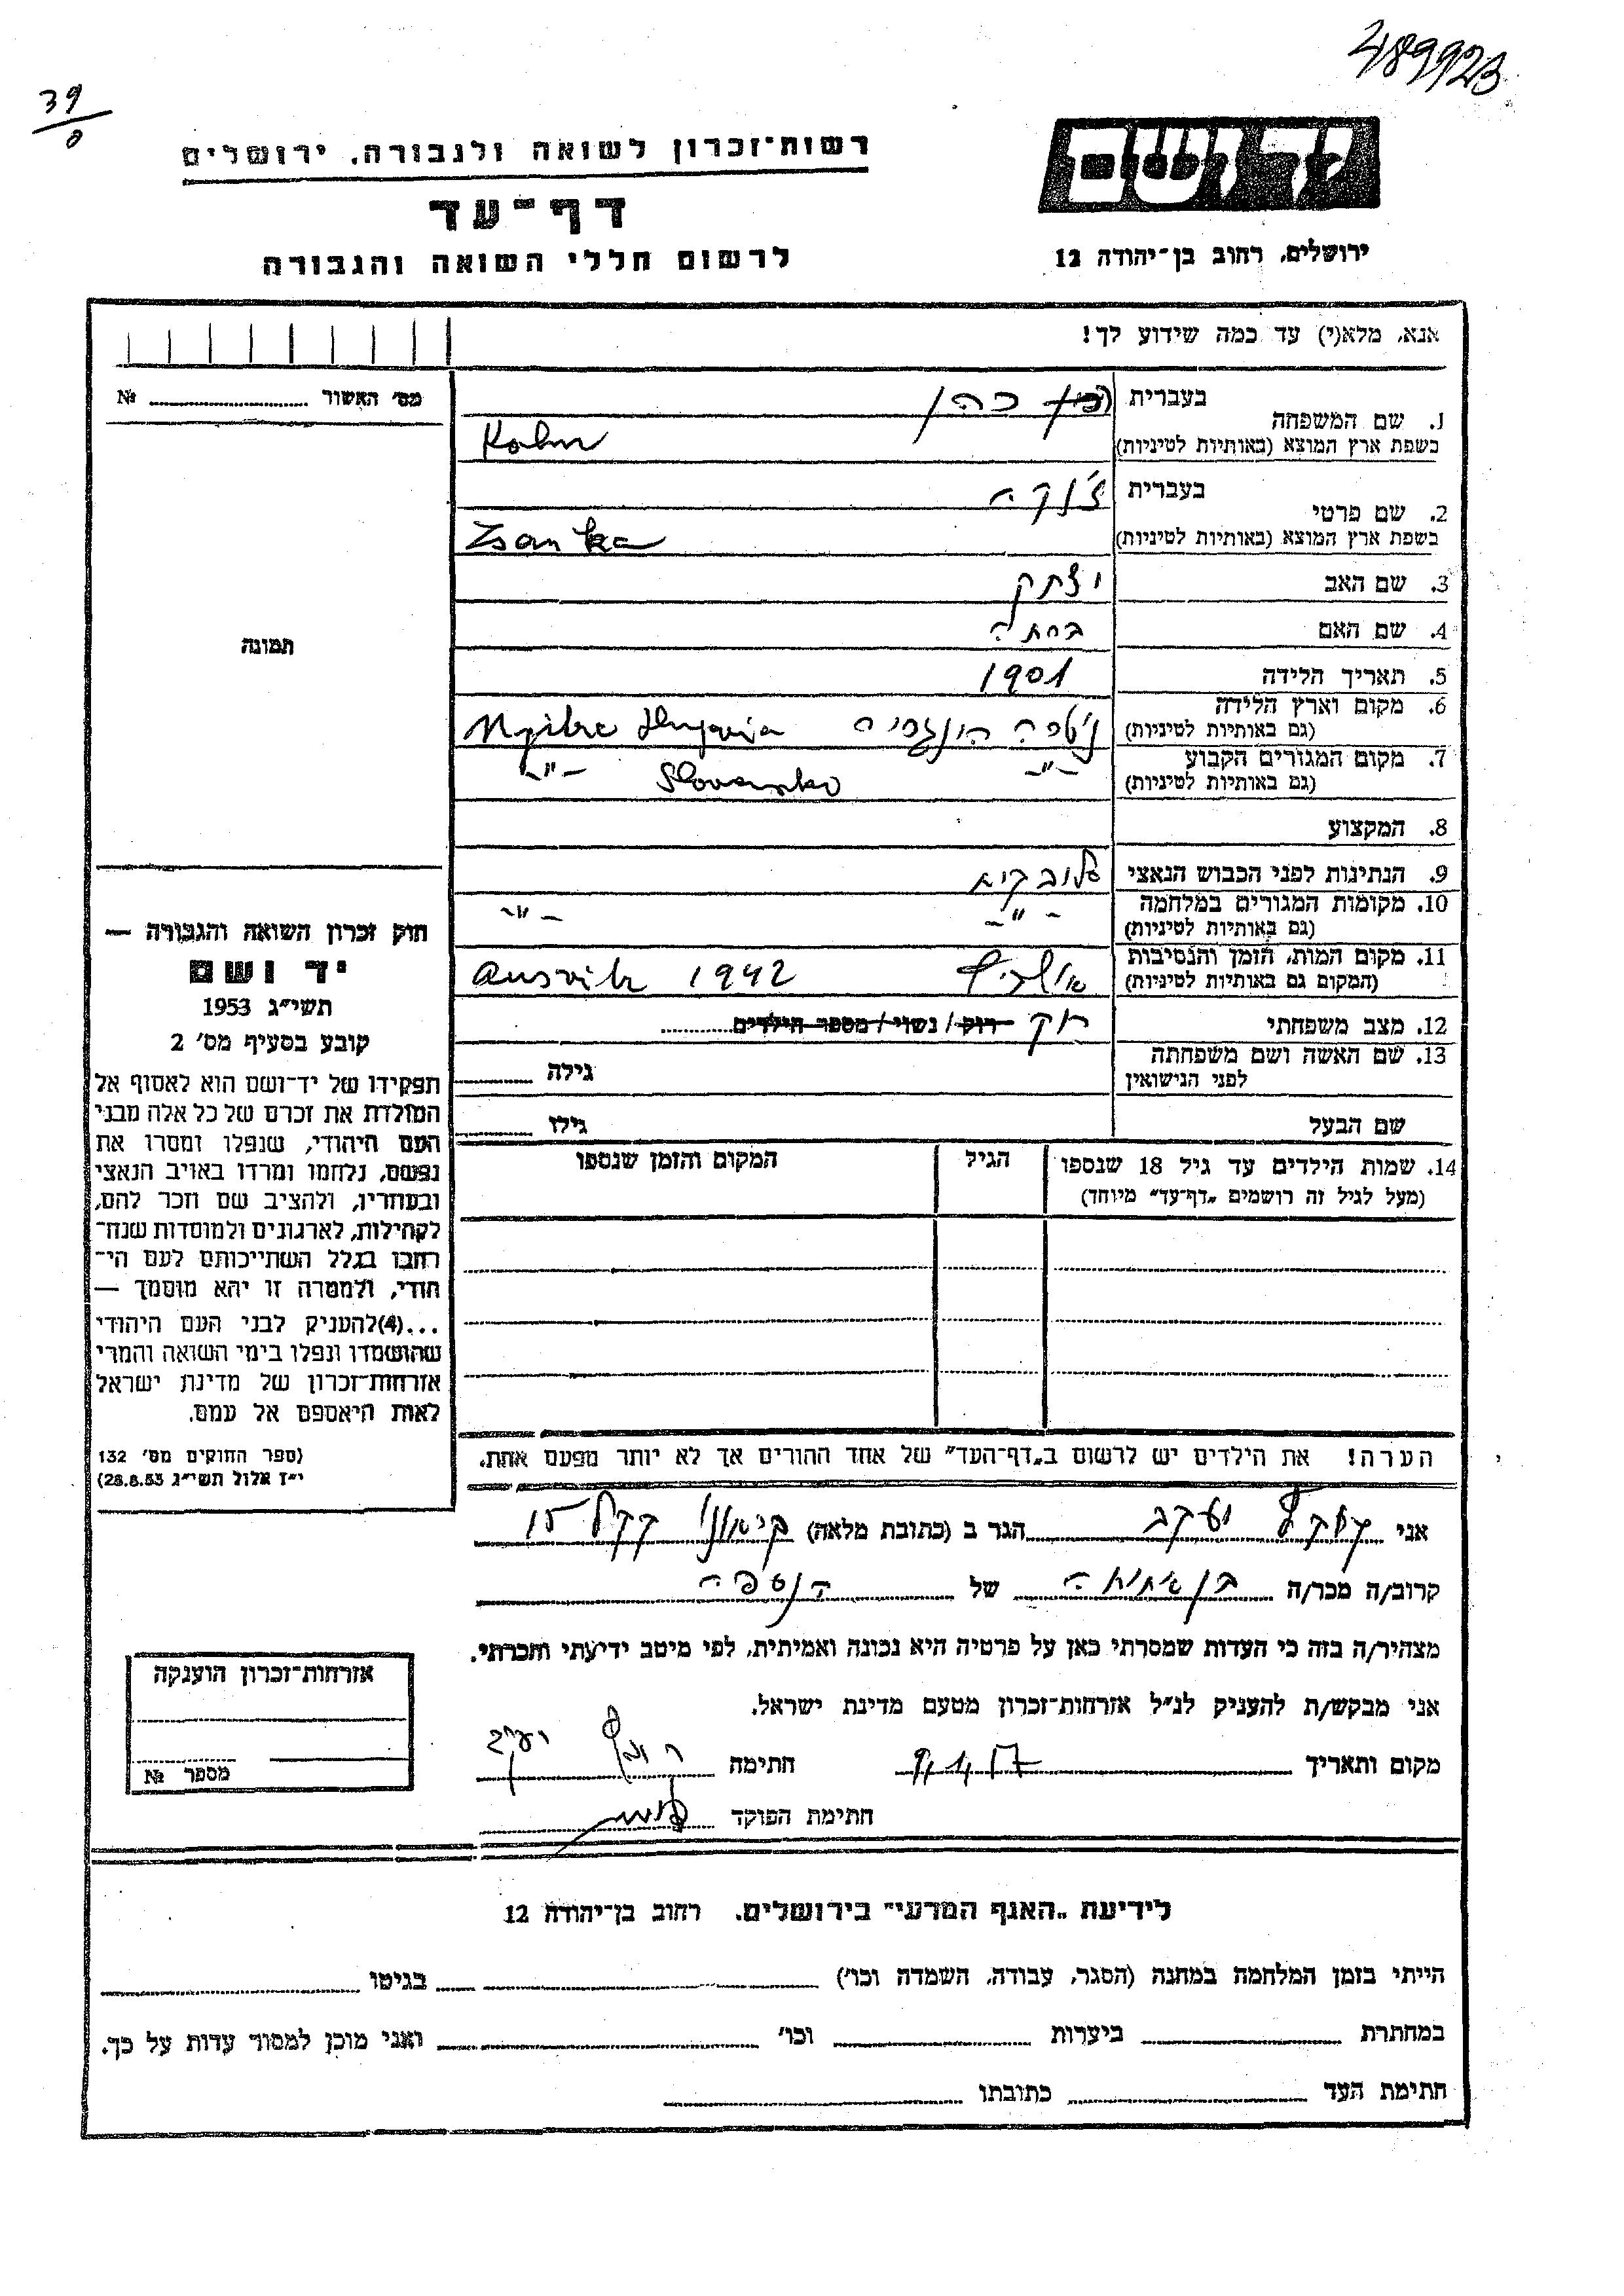 489923
39
רשות־זכרון לשואה ולגבורה, ירושלים
דף־עד
לרשום חללי השואה והגבורה
יד ושם
ירושלים, רחוב בן־יהודה 12
אנא, מלא(י) עד כמה שידוע לך!
מס' האשור № 
1. שם המשפחה בעברית כהן
בשפת ארץ המוצא (באותיות לטיניות) Kohn
2. שם פרטי בעברית ז'נקה
בשפת ארץ המוצא (באותיות לטיניות) Zsanka
3. שם האב יצחק
4. שם האם
5. תאריך הלידה 1901
6. מקום וארץ הלידה
(גם באותיות לטיניות) ניטרה הונגריה
7. מקום המגורים הקבוע -"- Slovensko -"-
(גם באותיות לטיניות)
8. המקצוע
9. הנתינות לפני הכבוש הנאצי סלובקיא
10. מקומות המגורים במלחמה -"- -"-
(גם באותיות לטיניות)
11. מקום המות, הזמן והנסיבות
(המקום גם באותיות לטיניות) Ausvitz 1942
12. מצב משפחתי רוק רוק / נשוי / מספר הילדים
13. שם האשה ושם משפחתה
לפני הנישואין גילה
שם הבעל גילו
14. שמות הילדים עד גיל 18 שנספו הגיל המקום והזמן שנספו
(מעל לגיל זה רושמים „דף־עד" מיוחד)
הערה! את הילדים יש לרשום ב„דף־העד" של אחד ההורים אך לא יותר מפעם אחת.
תמונה
חוק זכרון השואה והגבורה —
יד ושם
תשי"ג 1953
קובע בסעיף מס' 2
תפקידו של יד־ושם הוא לאסוף אל
המולדת את זכרם של כל אלה מבני
העם היהודי, שנפלו ומסרו את
נפשם, נלחמו ומרדו באויב הנאצי
ובעוזריו, ולהציב שם וזכר להם,
לקהילות, לארגונים ולמוסדות שנח־
רבו בגלל השתייכותם לעם הי־
הודי, ולמטרה זו יהא מוסמך —
...(4) להעניק לבני העם היהודי
שהושמדו ונפלו בימי השואה והמרי
אזרחות־זכרון של מדינת ישראל
לאות היאספם אל עמם.
(ספר החוקים מס' 132
י"ז אלול תשי"ג 28.8.53)
אני יעקב הגר ב (כתובת מלאה) קק"ל 15
קרוב/ה מכר/ה בן אחות של הנספה
מצהיר/ה בזה כי העדות שמסרתי כאן על פרטיה היא נכונה ואמיתית, לפי מיטב ידיעתי והכרתי.
אני מבקש/ת להעניק לנ"ל אזרחות־זכרון מטעם מדינת ישראל.
מקום ותאריך חתימה יעקב
חתימת הפוקד
אזרחות־זכרון הוענקה
מספר №
לידיעת „האגף המדעי" בירושלים, רחוב בן־יהודה 12
הייתי בזמן המלחמה במחנה (הסגר, עבודה, השמדה וכו') בגיטו
במחתרת ביערות וכו' ואני מוכן למסור עדות על כך.
חתימת העד כתובתו